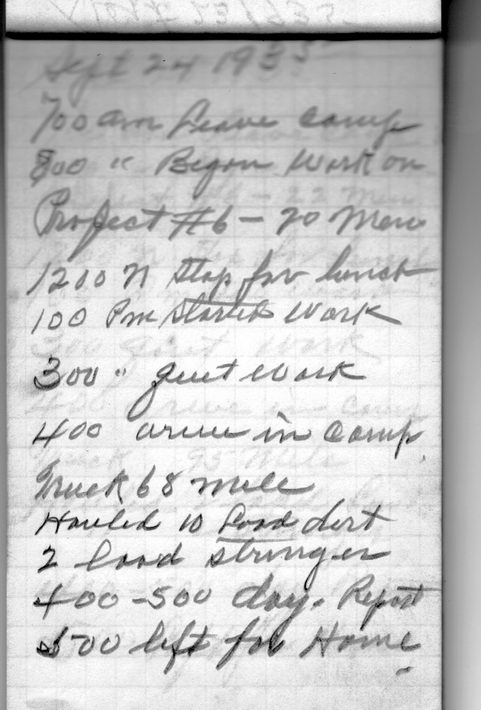 Sept 24 1935
700 am Leave Camp
800 " Began Work on
Project #6 - 20 Men
1200 N Stop for lunch
100 Pm Started Work
300 " quit Work
400 arive in Camp
Truck 68 mile
Hauled 10 Load dirt
2 load stringer
400-500 day. Report
500 left for Home